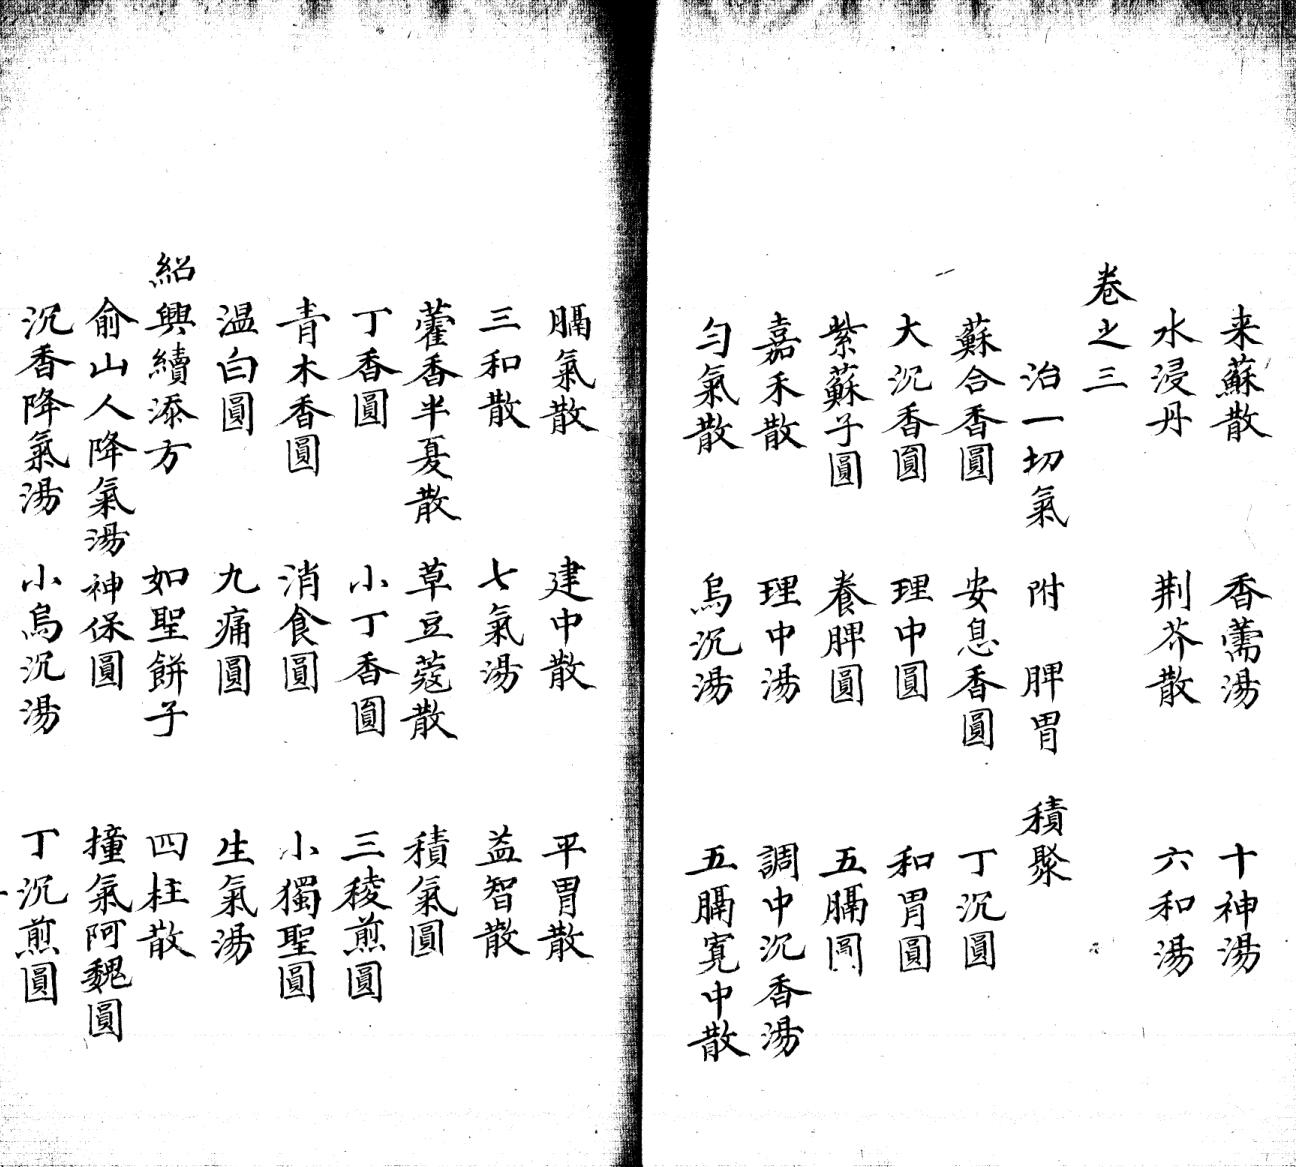 来蘇散 香薷湯 十神湯
水浸丹 荆芥散 六和湯
卷之三
治一切氣 附 脾胃 積聚
蘇合香圓 安息香圓 丁沉圓
大沉香圓 理中圓 和胃圓
紫蘇子圓 養脾圓 五膈圓
嘉禾散 理中湯 調中沉香湯
勻氣散 烏沉湯 五膈寛中散
膈氣散 建中散 平胃散
三和散 七氣湯 益智散
藿香半夏散 草豆蔻散 積氣圓
丁香圓 小丁香圓 三稜煎圓
青木香圓 消食圓 小獨聖圓
温白圓 九痛圓 生氣湯
紹興續添方 如聖餅子 四柱散
俞山人降氣湯 神保圓 撞氣阿魏圓
沉香降氣湯 小烏沉湯 丁沉煎圓